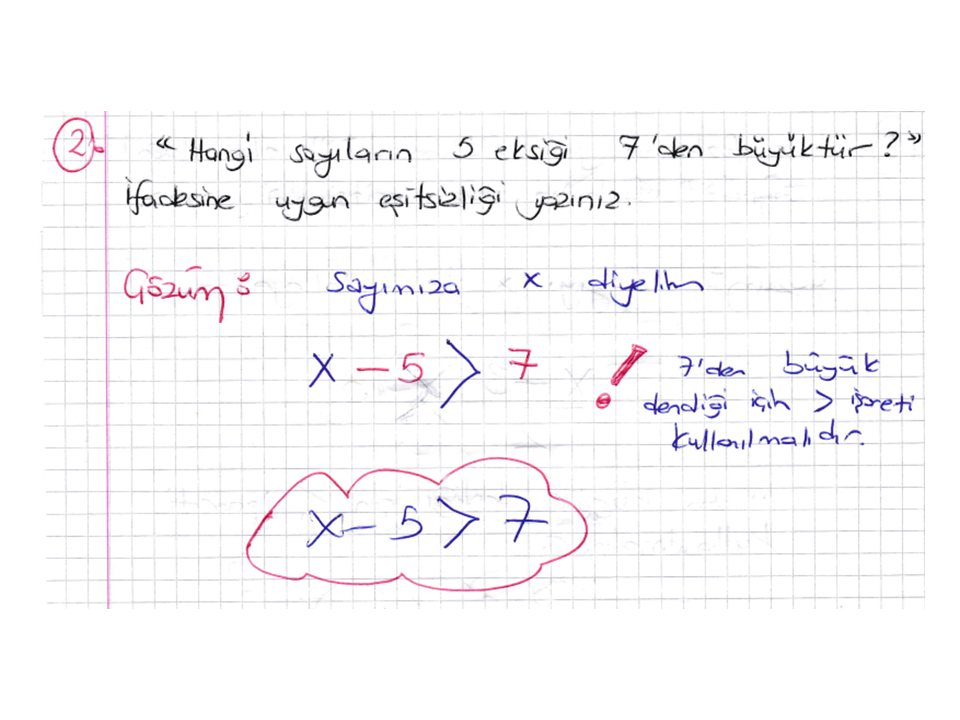 2- "Hangi sayıların 5 eksiği 7'den büyüktür?"
ifadesine uygun eşitsizliği yazınız.
Çözüm: Sayımıza x diyelim
x - 5 > 7
! 7'den büyük
dendiği için > işareti
kullanılmalıdır.
x - 5 > 7